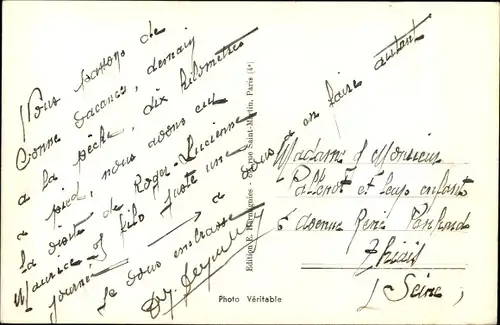 Nous passons de
bonne vacances, demain
a la pêche, dix kilomètres
a pied, nous avons eu
la visite de Roger - Lucienne
Maurice et fils juste une
journée → a vous d en faire autant
Je vous embrasse
Madame & Monsieur
et leur enfant
6 avenue René Panhard
Thiais
(Seine)
Edition E. - 15, Saint-Martin, Paris (4e)
Photo Véritable